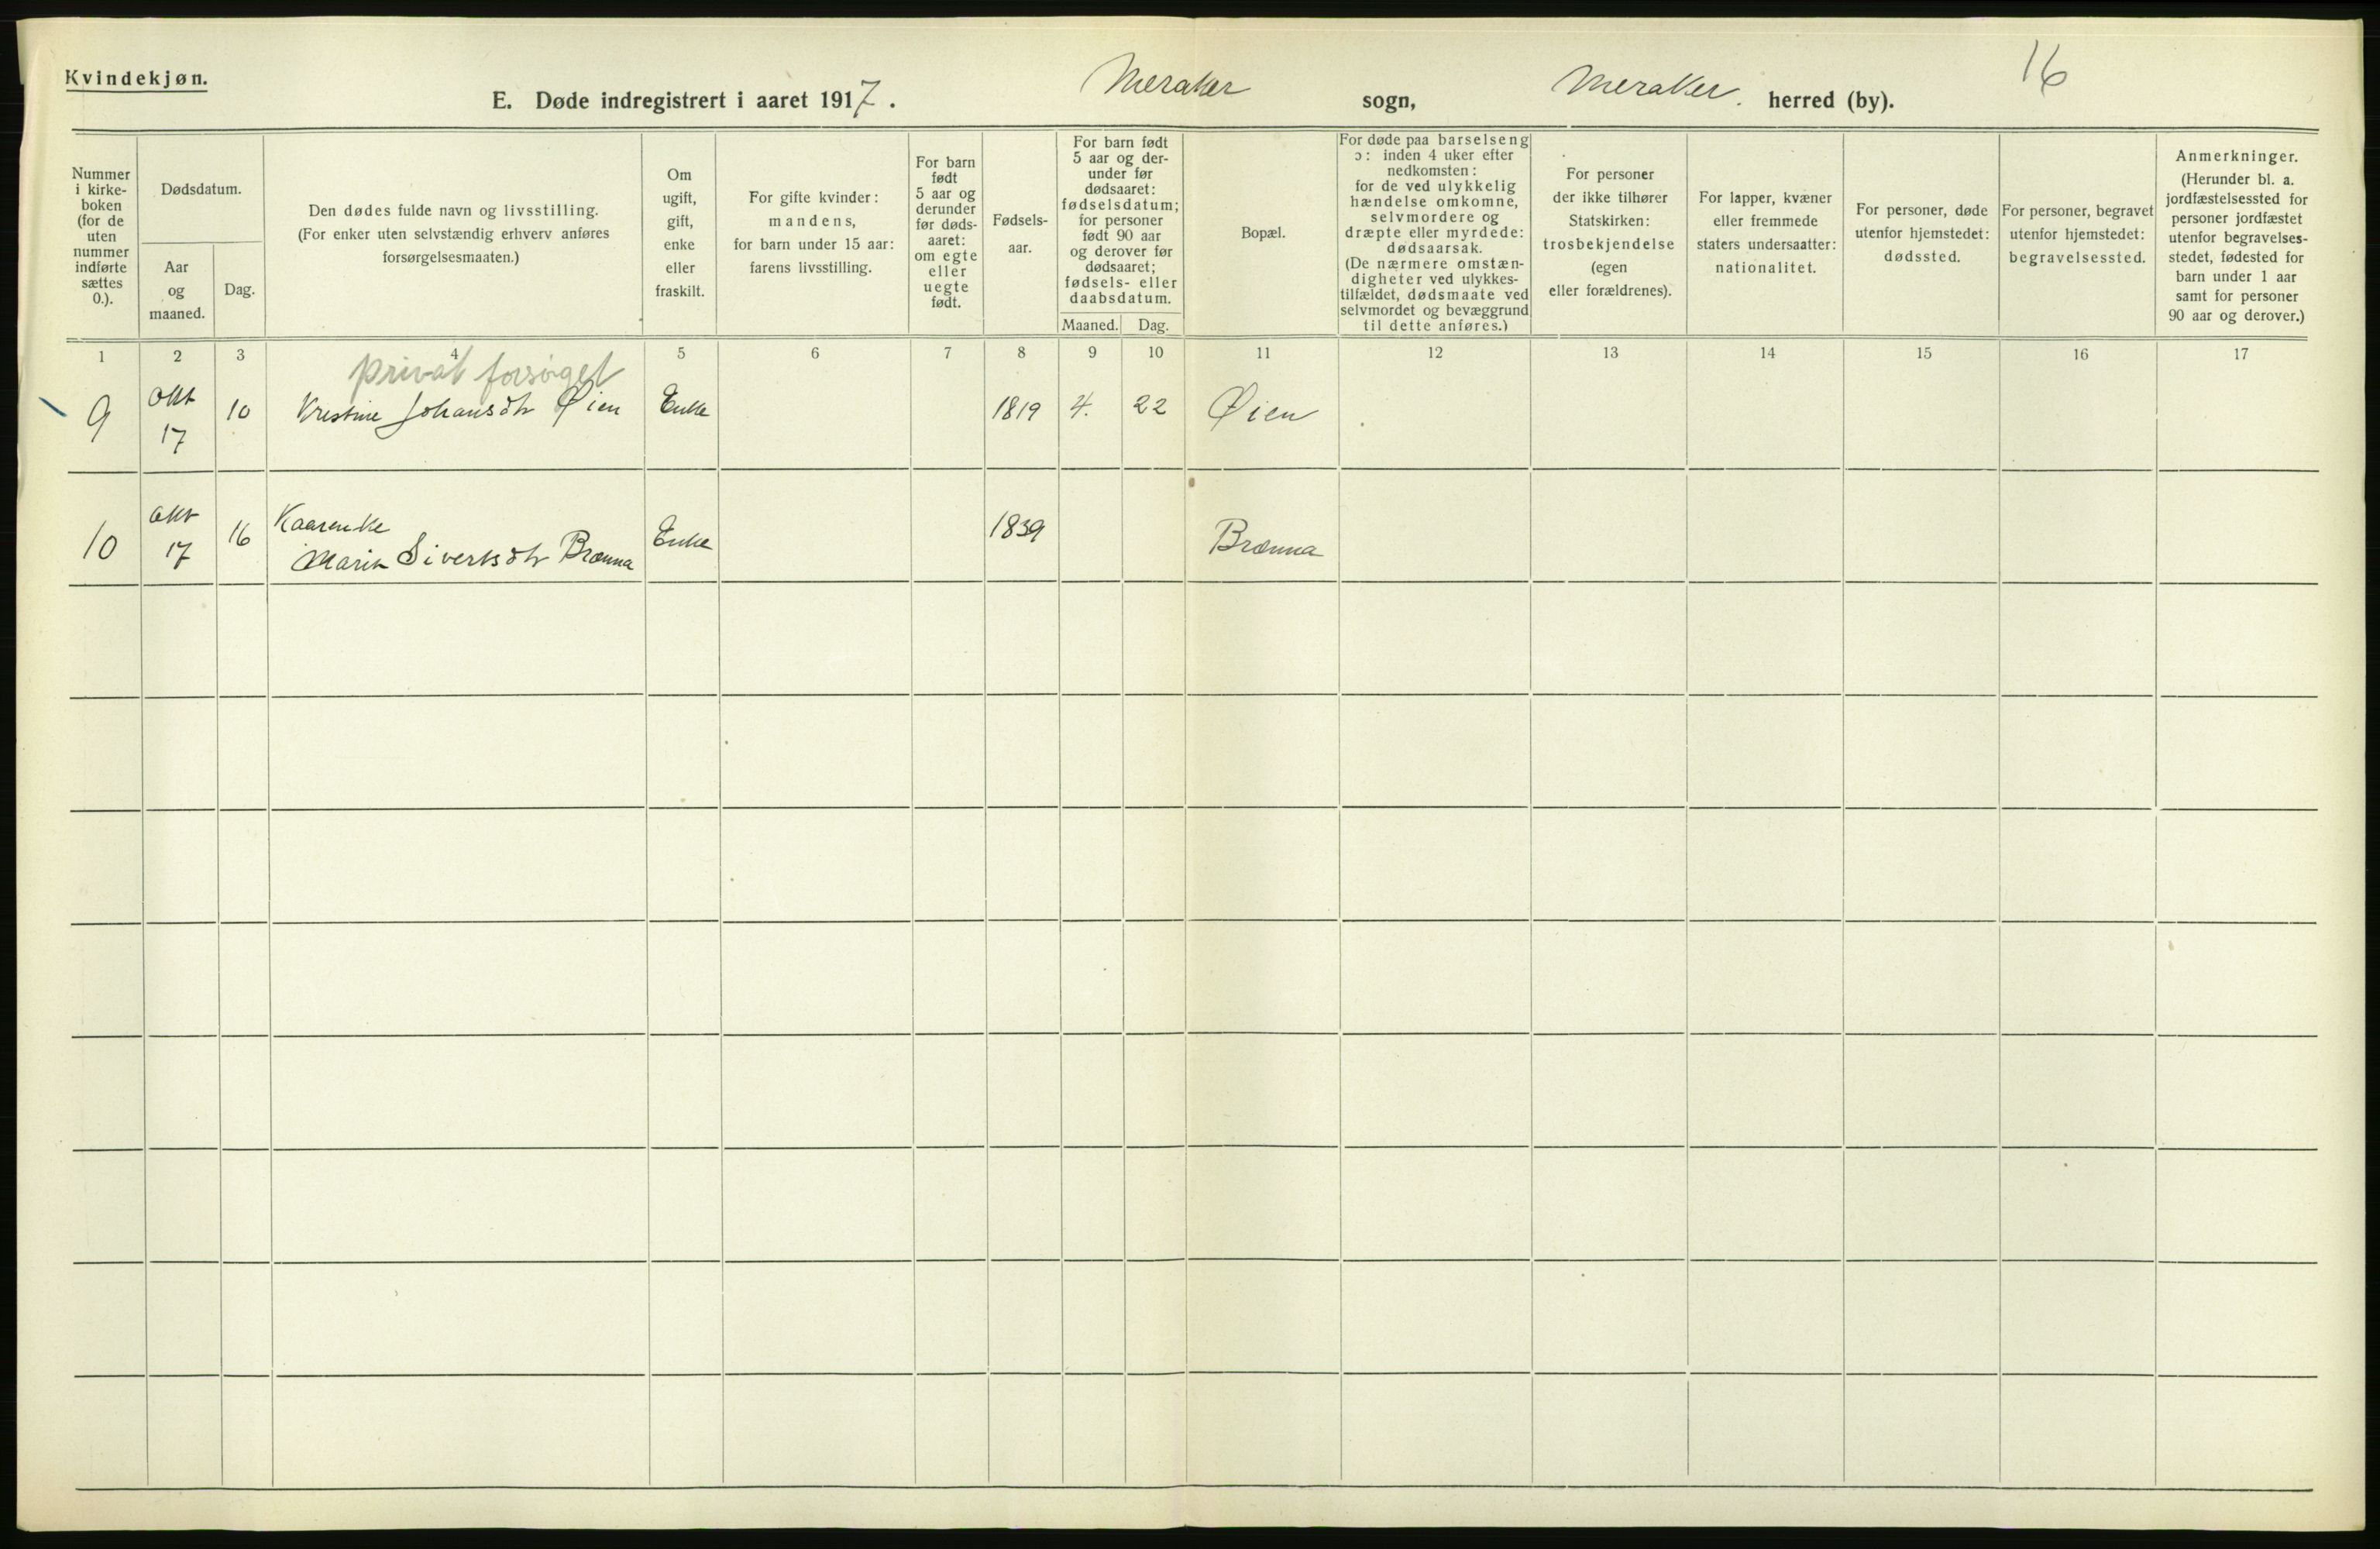 Kvindekjøn.
E. Døde indregistrert i aaret 1917. Meraker sogn, Meraker. herred (by).
16
Nummer
i kirke-
boken
(for de
uten
nummer
indførte
sættes
0.).
Dødsdatum.
Aar
og
maaned.
Dag.
Den dødes fulde navn og livsstilling.
(For enker uten selvstændig erhverv anføres
forsørgelsesmaaten.)
Om
ugift,
gift,
enke
eller
fraskilt.
For gifte kvinder:
mandens,
for barn under 15 aar:
farens livsstilling.
For barn
født
5 aar og
derunder
før døds-
aaret:
om egte
eller
uegte
født.
Fødsels-
aar.
For barn født
5 aar og der-
under før
dødsaaret:
fødselsdatum;
for personer
født 90 aar
og derover før
dødsaaret;
fødsels- eller
daabsdatum.
Maaned. Dag.
Bopæl.
For døde paa barselseng
ɔ: inden 4 uker efter
nedkomsten:
for de ved ulykkelig
hændelse omkomne,
selvmordere og
dræpte eller myrdede:
dødsaarsak.
(De nærmere omstæn-
digheter ved ulykkes-
tilfældet, dødsmaate ved
selvmordet og bevæggrund
til dette anføres.)
For personer
der ikke tilhører
Statskirken:
trosbekjendelse
(egen
eller forældrenes).
For lapper, kvæner
eller fremmede
staters undersaatter:
nationalitet.
For personer, døde
utenfor hjemstedet:
dødssted.
For personer, begravet
utenfor hjemstedet:
begravelsessted.
Anmerkninger.
(Herunder bl. a.
jordfæstelsessted for
personer jordfæstet
utenfor begravelses-
stedet, fødested for
barn under 1 aar
samt for personer
90 aar og derover.)
1 2 3 4 5 6 7 8 9 10 11 12 13 14 15 16 17
privat forsørget
9 Okt 17 10 Kristine Johansdtr Øien Enke 1819 4. 22 Øien
10 Okt 17 16 Kaarenke
Marit Sivertsdtr Brænna Enke 1839 Brænna